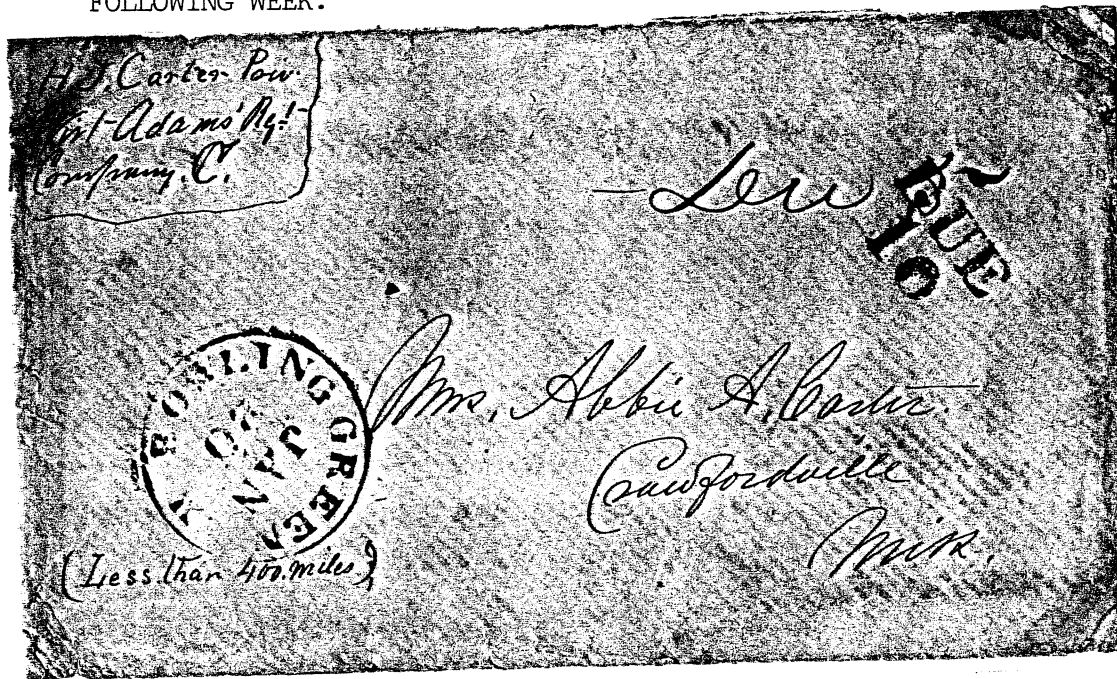 FOLLOWING WEEK.
H. J. Carter Pow.
Wirt Adams' Regt
Company. C.
DUE
10
BOWLING GREEN
JAN
Mrs. Abbie A. Carter.
Crawfordville
Miss.
(Less than 400 miles)